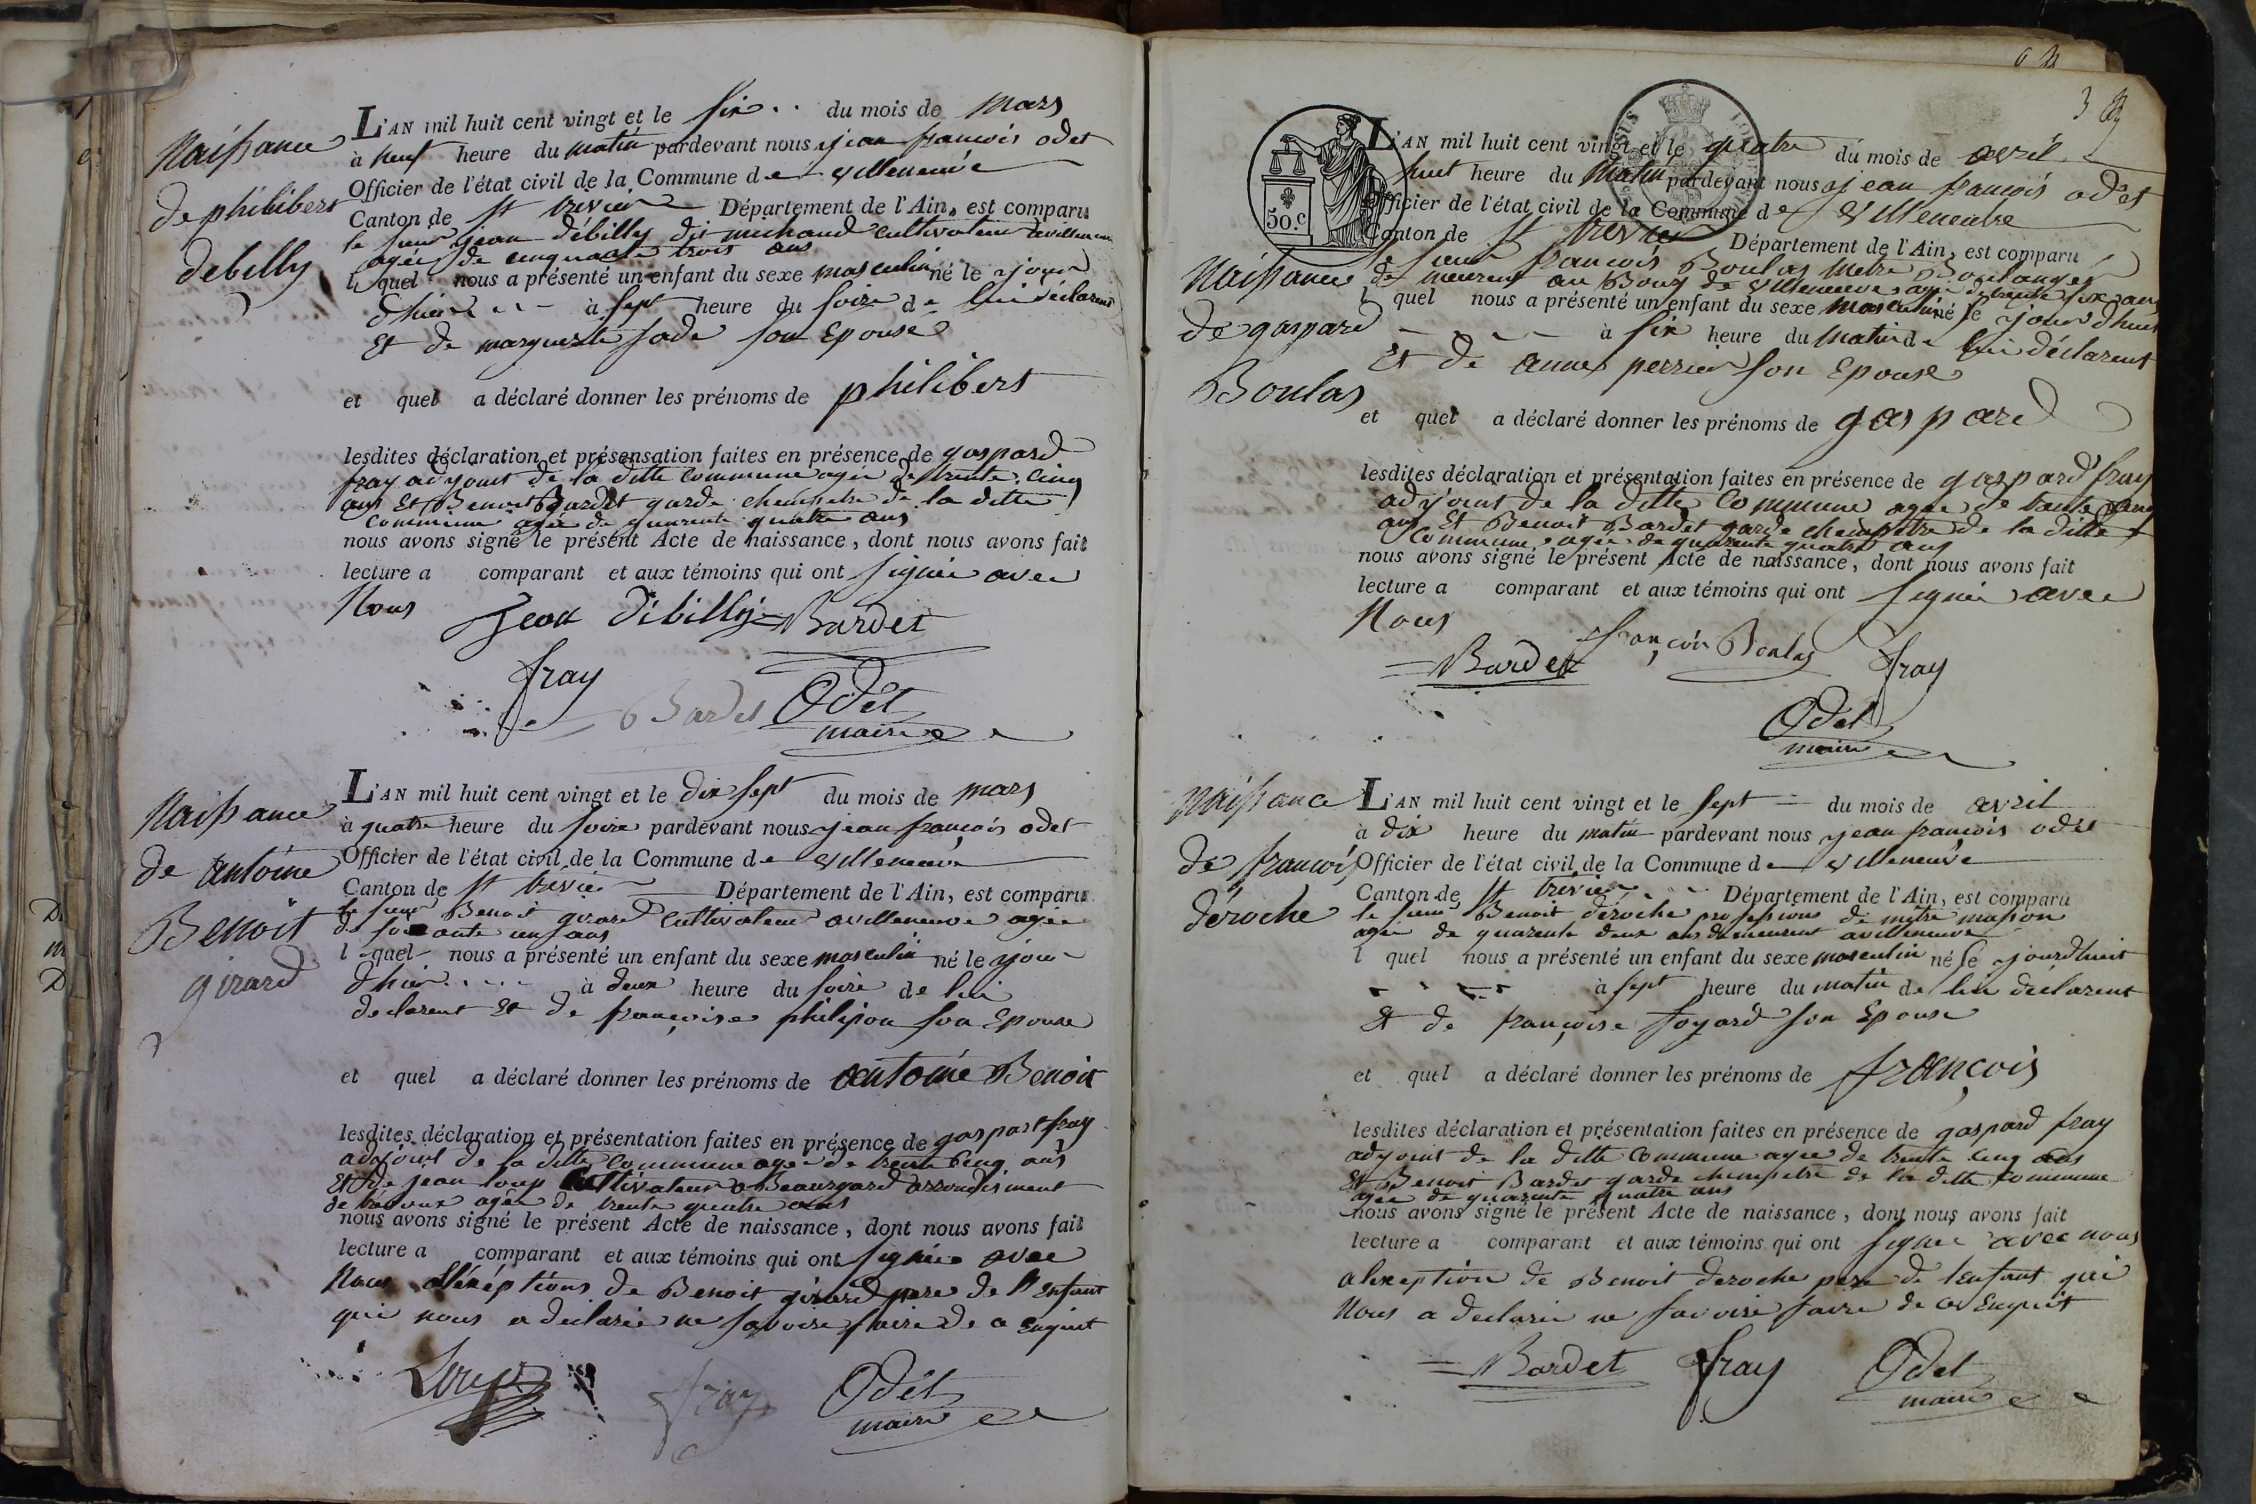 Naissance
de philibert
debilly
L'AN mil huit cent vingt et le six du mois de Mars
à neuf heure du matin pardevant nous jean françois odet
Officier de l'état civil de la Commune de villeneuve
Canton de St trivier Département de l'Ain, est comparu
le sieur jean débilly dit michaud cultivateur a villeneuve
agée de cinquante trois ans
lequel nous a présenté un enfant du sexe masculin né le jour
dhier à sept heure du soire de lui déclarent
Et de marguerite sade son Epouse
et quel a déclaré donner les prénoms de philibert
lesdites déclaration et présensation faites en présence de gaspard
fray adjoint de la ditte commune agée de trente cinq
ans Et Benoit Bardet garde chempetre de la ditte
commune agée de quarente quatre ans
nous avons signé le présent Acte de naissance, dont nous avons fait
lecture a comparant et aux témoins qui ont signée avec
Nous
Jean Dibilly Bardet
fray
Bardet Odet
maire
Naissance
de antoine
Benoit
girard
L'AN mil huit cent vingt et le dix sept du mois de mars
à quatre heure du soire pardevant nous jean françois odet
Officier de l'état civil de la Commune de villeneuve
Canton de St trévier Département de l'Ain, est comparu
le sieur Benoit girard cultivateur a villeneuve agée
de soixante un ans
l quel nous a présenté un enfant du sexe masculin né le jour
dhier à deux heure du soire de lui
declarent Et de françoise philipon son Epouse
et quel a déclaré donner les prénoms de antoine Benoit
lesdites déclaration et présentation faites en présence de gaspart fray
adjoint de la ditte commune agée de trente cinq ans
Et de jean loup cultivateur a Beauregard arrondisment
de trévoux agée de trente quatre ans
nous avons signé le présent Acte de naissance, dont nous avons fait
lecture a comparant et aux témoins qui ont signée avec
Nous a l'éxéptions de Benoit girard pere de l'Enfant
qui nous a declarée ne savoire faire de ce Enquit
Loup fray Odet
maire
3
L'AN mil huit cent vingt et le quatre du mois de avril
huit heure du Matin pardevant nous jean françois odet
Officier de l'état civil de la Commune de villeneuve
Canton de St trevier Département de l'Ain, est comparu
50.c
Naissance
de gaspard
Boulas
le sieur françois Boulas Metre Boulanger
de meurent au Bourg de villeneuve agée de trente six ans
l quel nous a présenté un enfant du sexe masculin né le jourdhuit
à six heure du Matin de lui déclarent
Et de anne perrier son Epouse
et quel a déclaré donner les prénoms de gaspard
lesdites déclaration et présentation faites en présence de gaspard fray
adjoint de la ditte Commune agée de trente cinq
ans Et Benoit Bardet garde chempetre de la ditte
Commune agée de quarente quatre ans
nous avons signé le présent Acte de naissance, dont nous avons fait
lecture a comparant et aux témoins qui ont signée avec
Nous
Bardet françois Boulas fray
Odet
maire
Naissance
de françois
déroche
L'AN mil huit cent vingt et le sept du mois de avril
à dix heure du matin pardevant nous jean françois odet
Officier de l'état civil de la Commune de villeneuve
Canton de St trevier Département de l'Ain, est comparu
le sieur Benoit déroche professions de mètre mason
agée de quarente deux ans demeurent a villeneuve
l quel nous a présenté un enfant du sexe masculin né le jourdhuit
à sept heure du matin de lui déclarent
Et de françoise foyard son Epouse
et quel a déclaré donner les prénoms de françois
lesdites déclaration et présentation faites en présence de gaspard fray
adjoint de la ditte Commune agée de trente cinq ans
Et Benoit Bardet garde chempetre de la ditte commune
agée de quarente quatre ans
nous avons signé le présent Acte de naissance, dont nous avons fait
lecture a comparant et aux témoins qui ont signée avec nous
alexeption de Benoit deroche pere de lenfant qui
Nous a declarée ne savoire faire de ce Enquit
Bardet fray Odet
maire